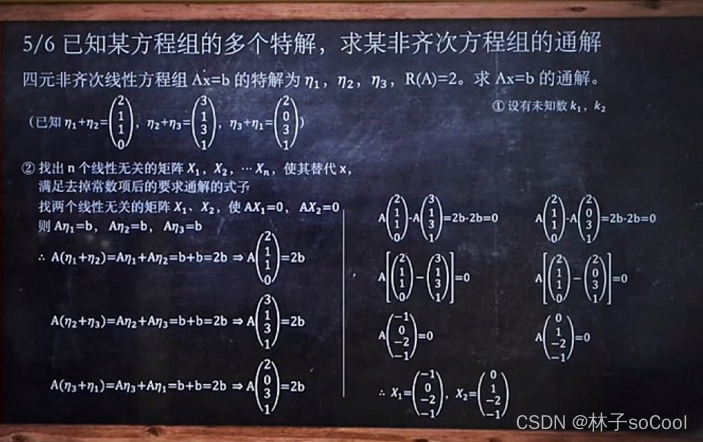 5/6 已知某方程组的多个特解，求某非齐次方程组的通解
四元非齐次线性方程组 Ax=b 的特解为 η₁，η₂，η₃，R(A)=2。求 Ax=b 的通解。
① 设有未知数 k₁，k₂
（已知 η₁+η₂=(2 1 1 0)，η₂+η₃=(3 1 3 1)，η₃+η₁=(2 0 3 1)）
② 找出 n 个线性无关的矩阵 X₁，X₂，⋯Xₙ，使其替代 x，
满足去掉常数项后的要求通解的式子
找两个线性无关的矩阵 X₁、X₂，使 AX₁=0，AX₂=0
则 Aη₁=b，Aη₂=b，Aη₃=b
∴ A(η₁+η₂)=Aη₁+Aη₂=b+b=2b ⇒ A(2 1 1 0)=2b
A(η₂+η₃)=Aη₂+Aη₃=b+b=2b ⇒ A(3 1 3 1)=2b
A(η₃+η₁)=Aη₃+Aη₁=b+b=2b ⇒ A(2 0 3 1)=2b
A(2 1 1 0)-A(3 1 3 1)=2b-2b=0
A(2 1 1 0)-A(2 0 3 1)=2b-2b=0
A[(2 1 1 0)−(3 1 3 1)]=0
A[(2 1 1 0)−(2 0 3 1)]=0
A(−1 0 −2 −1)=0
A(0 1 −2 −1)=0
∴ X₁=(−1 0 −2 −1)，X₂=(0 1 −2 −1)
CSDN @林子soCool